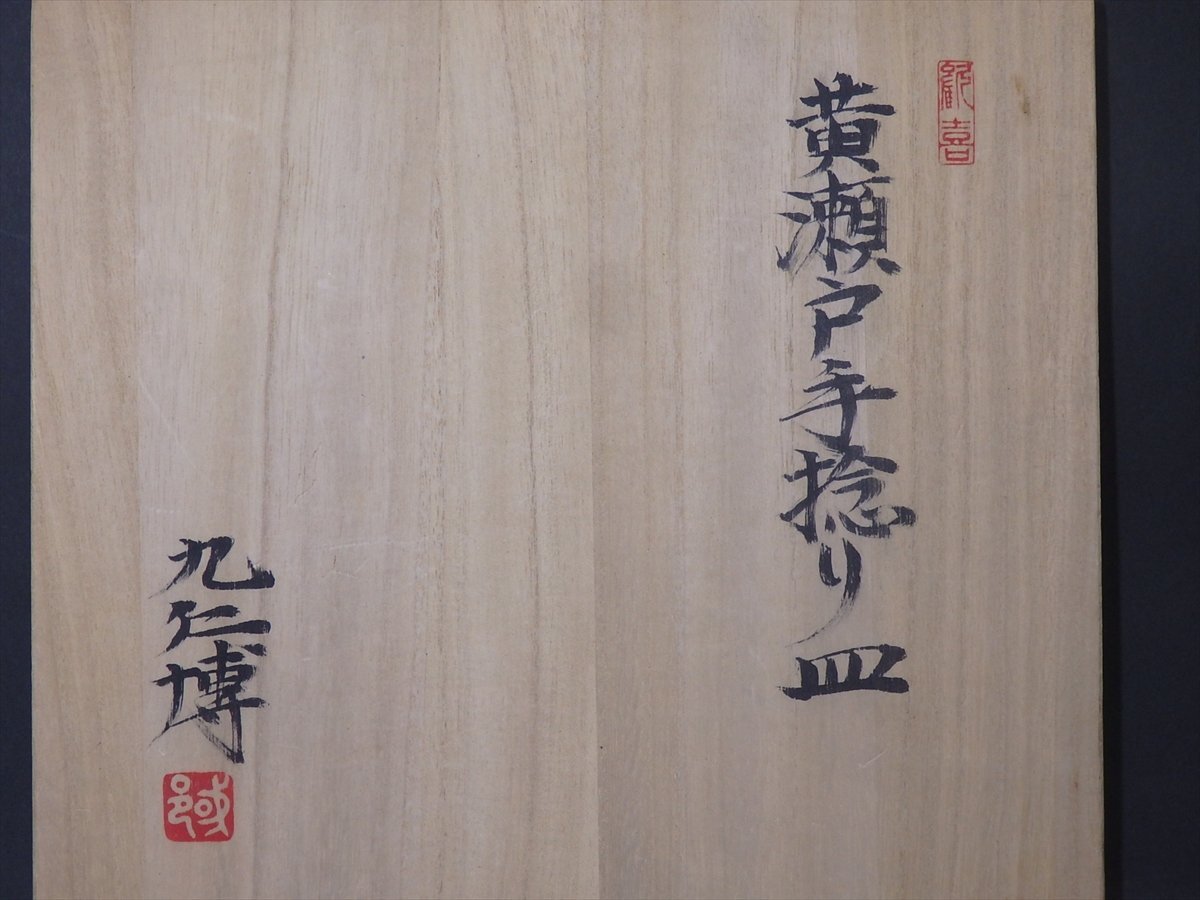 歡喜
黄瀬戸手捻り皿
九仁博